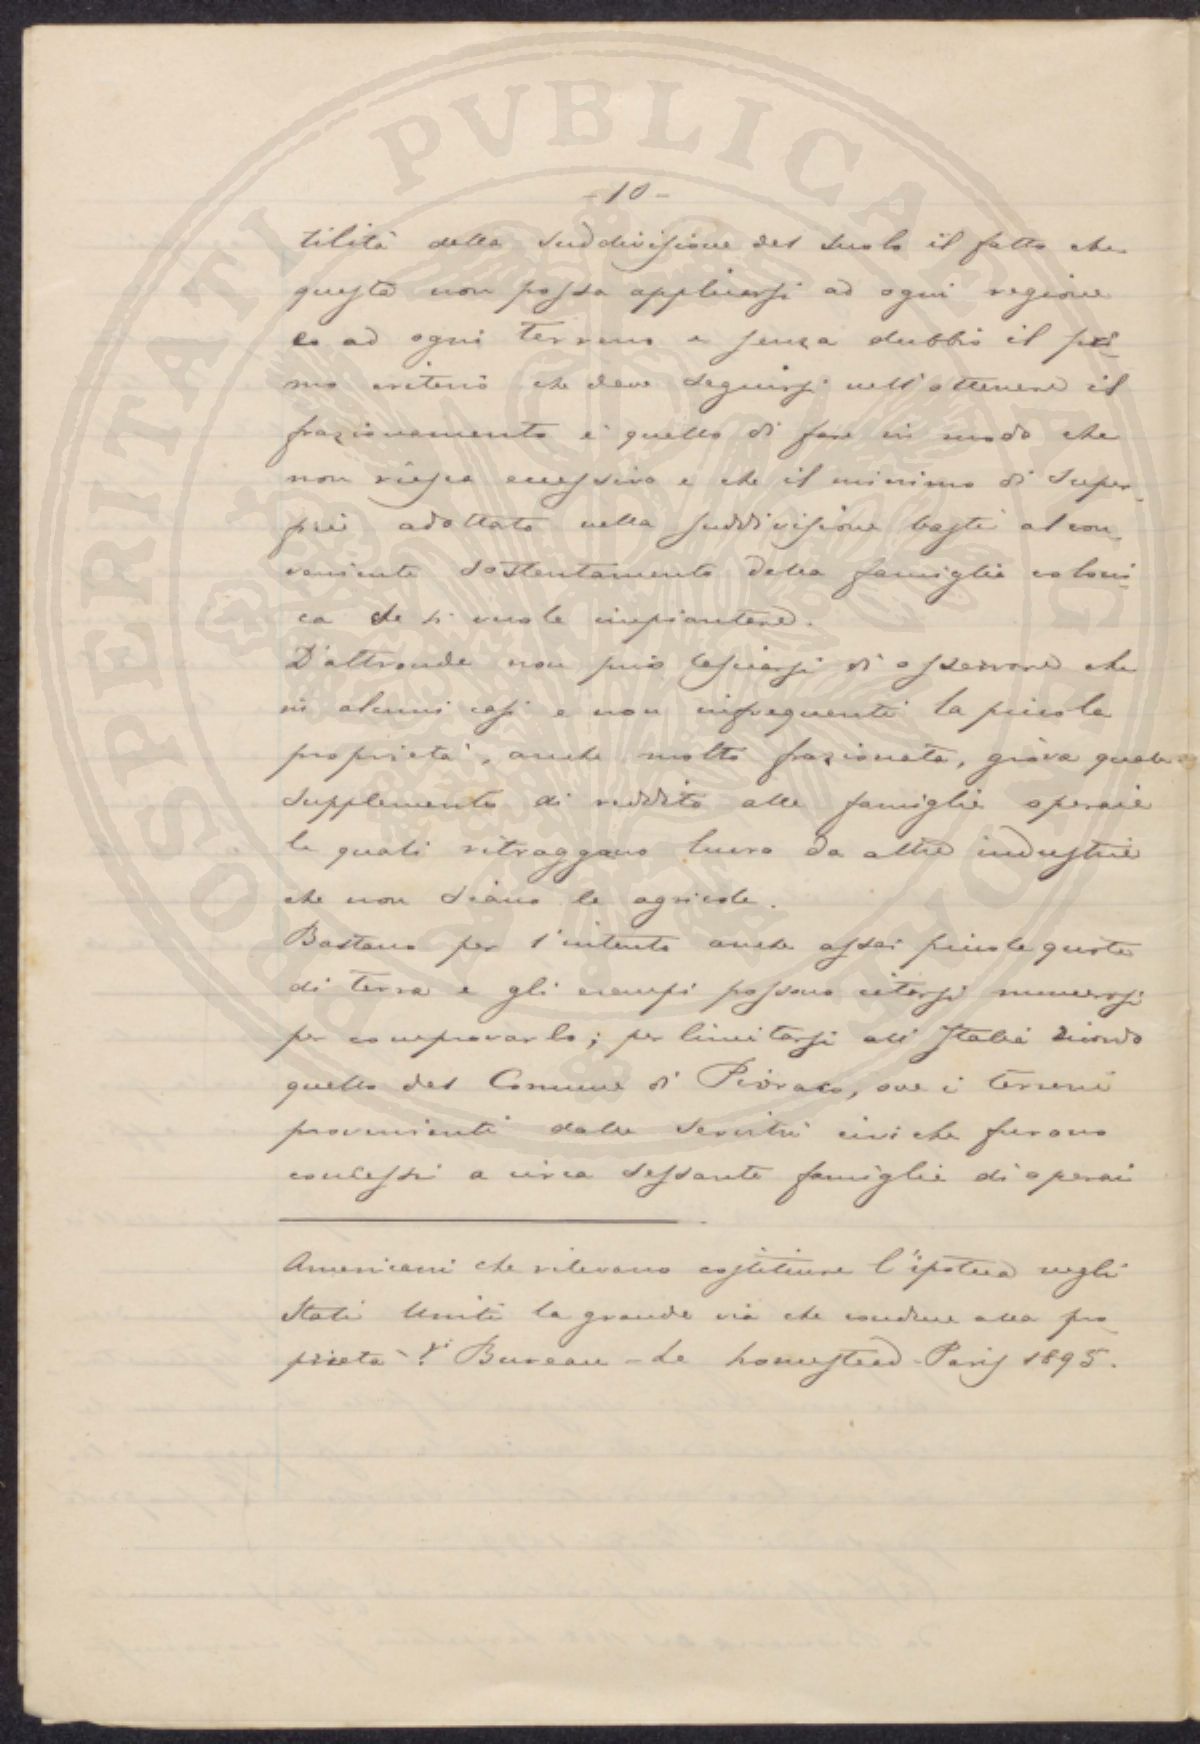 - 10 -
tilità della suddivisione del suolo il fatto che
questa non possa applicarsi ad ogni regione
ed ad ogni terreno e senza dubbio il pri-
mo criterio che deve seguirsi nell'ottenere il
frazionamento è quello di fare in modo che
non riesca eccessivo e che il minimo di super-
ficie adottato nella suddivisione basti al con-
veniente sostentamento della famiglia coloni-
ca che si vuole impiantare.
D'altronde non può lasciarsi di osservare che
in alcuni casi e non infrequenti la piccola
proprietà, anche molto frazionata, giova quale
supplemento di reddito alle famiglie operaie
le quali ritraggano lucro da altre industrie
che non siano le agricole.
Bastano per l'intento anche assai piccole quote
di terra e gli esempi possono citarsi numerosi
per comprovarlo; per limitarsi all'Italia ricordo
quello del Comune di Pioraco, ove i terreni
provenienti dalle servitù civiche furono
concessi a circa sessanta famiglie di operai
Americani che rilevano costituire l'ipoteca negli
Stati Uniti la grande via che conduce alla pro
prietà. Vi Bureau - Le homestead - Paris 1895.
PROSPERITATI PVBLICAE AVGENDAE